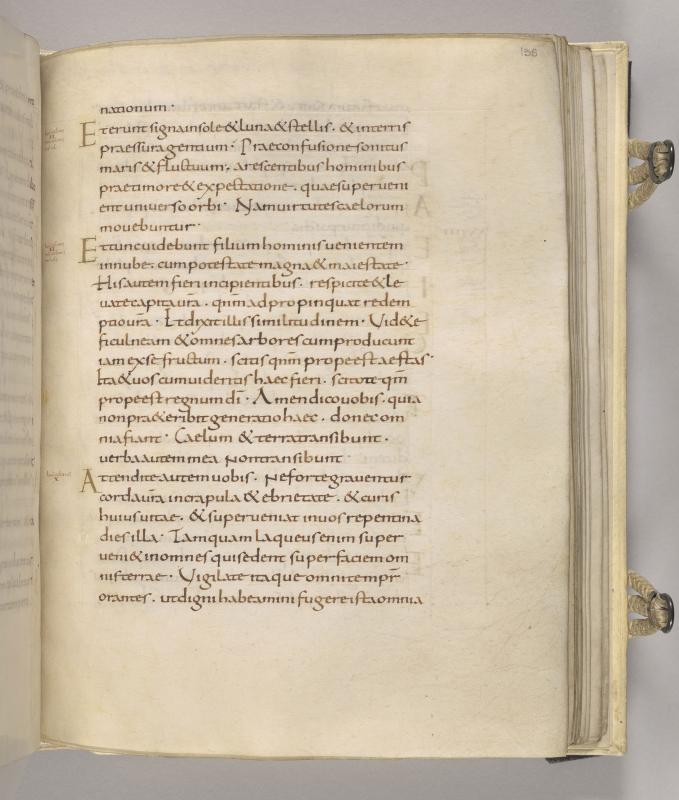 138
nationum·
Et erunt signa in sole & luna & stellis. & in terris
praessura gentium· Prae confusione sonitus
maris & fluctuum. arescentibus hominibus
prae timore & expectatione. quae superveni
ent universo orbi· Nam virtutes caelorum
movebuntur·
Et tunc videbunt filium hominis venientem
in nube. cum potestate magna & maiestate·
His autem fieri incipientibus. respicite & le
vate capita vr̄a. qnm̄ adpropinquat redem
ptio vr̄a· Et dixit illis similitudinem· Vid&e
ficulneam & omnes arbores cum producunt
iam ex se fructum. scitis qnm̄ prope est aestas·
Ita & vos cum videritis haec fieri. scitote qnm̄
prope est regnum dī· Amen dico vobis. quia
non prae&eribit generatio haec. donec om
nia fiant· Caelum & terra transibunt.
verba autem mea non transibunt·
Attendite autem vobis. ne forte graventur
corda vr̄a in crapula & ebrietate. & curis
huius vitae. & superveniat in vos repentina
dies illa· Tamquam laqueus enim super
veni& in omnes qui sedent super faciem om
nis terrae· Vigilate itaque omni tempr̄
orantes. ut digni habeamini fugere ista omnia